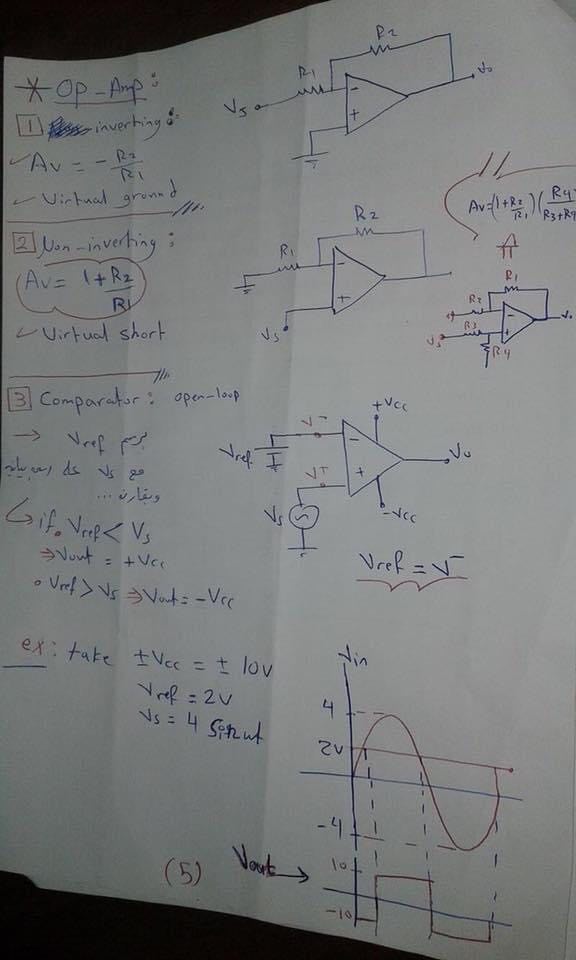 * Op-Amp:
1 inverting:
Av = - R2/R1
Virtual ground
R2
R1
Vs
Vo
-
+
2 Non-inverting:
Av = 1+R2/R1
Virtual short
R2
R1
Vs
-
+
Av=(1+R2/R1)(R4/R3+R4
R1
R2
R3
Vs
R4
Vo
-
+
3 Comparator: open-loop
→ Vref نرسم
مع Vs على
ونقارن ...
if. Vref < Vs
⇒ Vout = +Vcc
• Vref > Vs ⇒ Vout = -Vcc
V-
V+
Vref
Vs
+Vcc
-Vcc
Vo
-
+
Vref = V-
ex: take ±Vcc = ± 10V
Vref = 2V
Vs = 4 Sinwt
Vin
4
2V
-4
Vout →
10
-10
(5)